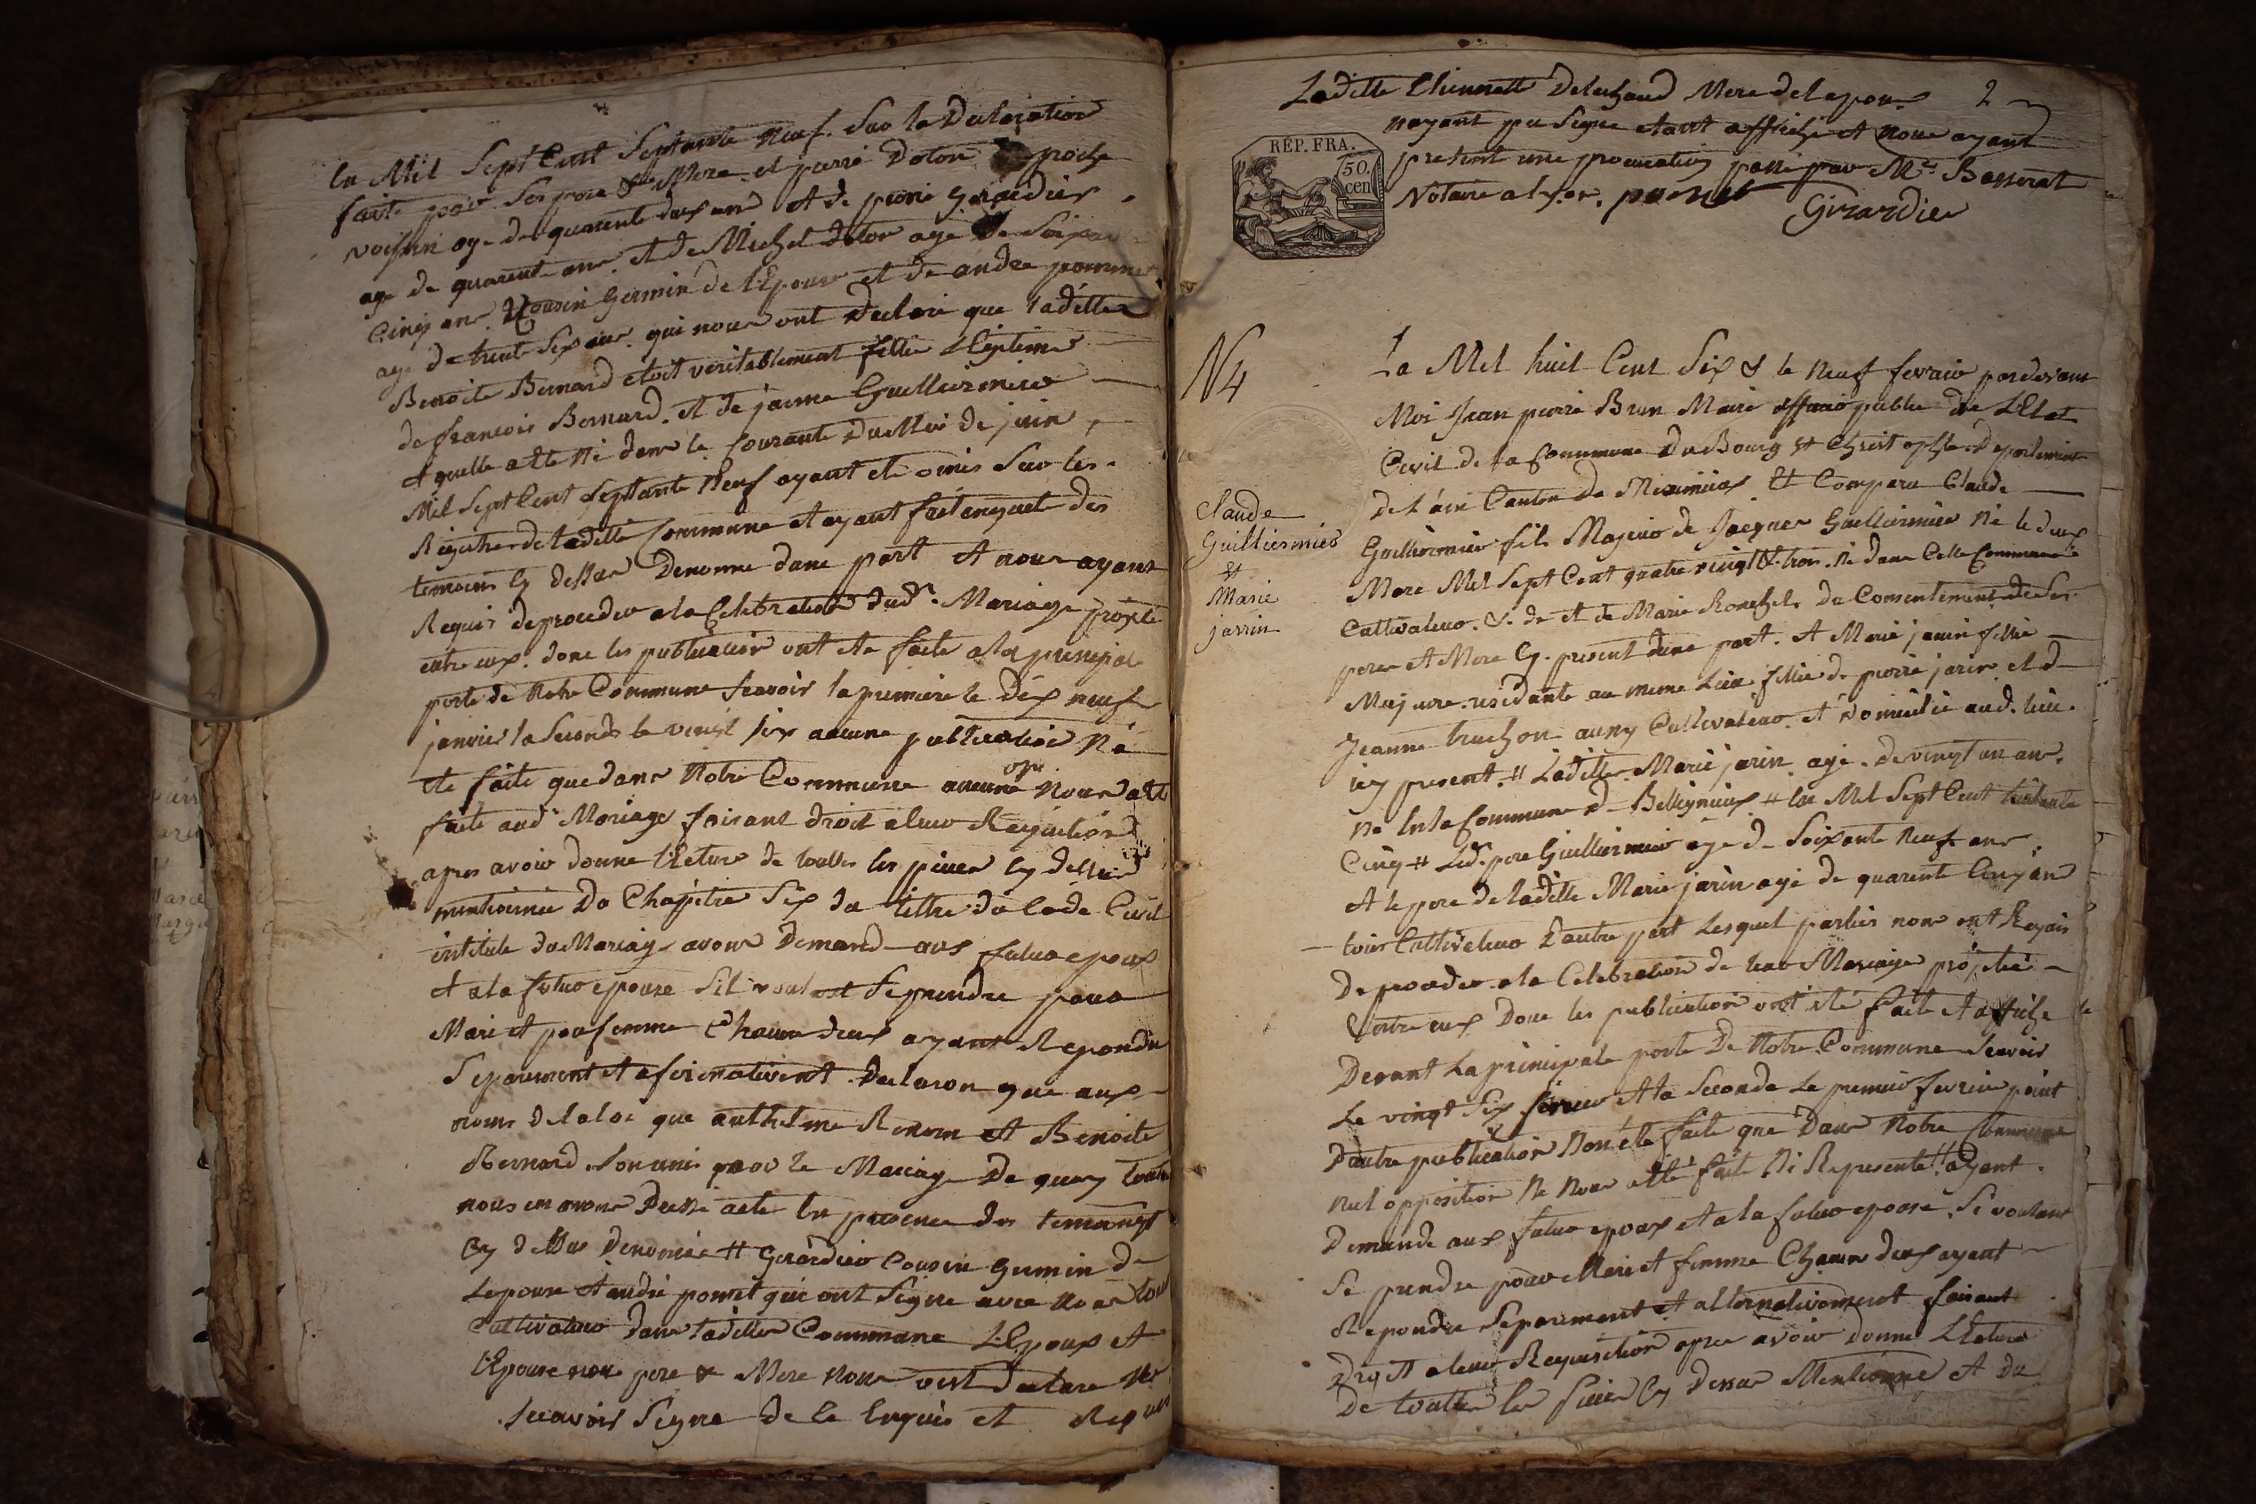 En Mil Sept Cent Septante neuf. Sur la Declaration
faite par Ses pere & Mere. et pierre Dolon proche
voisin age de quarente deux ans et de pierre girardier
age de quarente ans et de Michel dolon age de Soixante
Cinq ans Cousin Germin de l'Epouse et de andre pommet
age de trente Six ans qui nous ont Declare que laditte
Benoite Bernard etoit veritablement fille legitime
de francois Bernard. et de jaenne Guilliermier
et quelle a ete né dans le Courante du Moi de juin
Mil Sept Cent Septante Neuf ayant ete omis Sur les
Registres de ladite Commune et ayant fait enquete des
temoins Cy dessus Denomme dune part et nous ayant
Requis de proceder a la Celebration dud. Mariage projeté
entre eux. donc les publication ont ete faite a la principale
porte de Notre Commune Scavoir la premiere le dix neuf
janvier la Seconde le vingt Six aucune publication na
ete faite que dans Notre Commune aucune opn nous a ete
faite aud Mariage faisant droit a leur Requisition
apres avoir donne lecture de toutes les pieces Cy dessus
mentionnée Du Chapitre Six du tittre du Code Civil
intitule du Mariage avons Demand aux futur epoux
et a la futur epouse Sil veulent Se prendre pour
Mari et pour femme Chacun deux ayant Repondu
Separement et afirmativement Declaron que aux
noms de la loi que anthelme Renom et Benoite
Bernard Sont unis par le Mariage De quoy
nous en avons Dressé acte En presence des temoings
Cy dessus Denomée # Girardier Cousin germin de
Lepouse et andré pomet qui ont Signe avec Nous tous
Cultivateur dans laditte Commune LEpoux et
lEpouse pere & Mere Nous ont declare Ne
Scavoir Signe de Ce Enquis et Requis
Laditte Ethiennette Delachaud Mere de lepoux 2
nayant pu Signe etant et nous ayant
present une procuration passé par Me. Basserat
Notaire a lyon. pomet Girardier
RÉP. FRA.
50.
cen
N 4
La Mil huit Cent Six & le Neuf fevrier pardevant
Moi Jean pierre Brun Maire officier public de LEtat
Civil de la Commune du Bourg St Christophe Departement
de L'ain Canton de Meximieux Et Comparu Claude
Guilliermier fils Majeur de Jacques Guilliermier Né le deux
Mars Mil Sept Cent quatre vingt & trois. Né dans Cette Commune
Cultivateur. & de et de Marie Ronchel du Consentement de Ses
peres et Mere Cy present dune part. et Marie jarrin fille
Majeure residante au meme Lieu fille de pierre jarin et de
Jeanne truchon aussy Cultivateur et domicilie aud. lieu
icy present. # Laditte Marie jarin agé. de vingt un ans
né En la Commune de Belligneux # lan Mil Sept Cent
Cinq # Led. pere Guilliermier age de Soixante Neuf ans
Et le pere de laditte Marie jarin agé de quarente Cinq ans
tous Cultivateur Dautre part Lesquel parties nous ont Requis
De proceder a la Celebration de leur Mariage projetté
Entre eux Donc les publication ont été faite et affiche
Devant La principale porte De Notre Commune Scavoir
Le vingt Six et la Seconde Le premier fevrier point
Dautre publication Nont ete faite que Dans Notre Commune
Nul opposition Ne Nous atté fait Ni Represente # ayant
Demande aux futur epoux et a la futur epouse. Si voulant
Se prendre pour Mari et femme Chacun deux ayant
Repondu Separement et alternativement faisant
Droit a leur Requisition apres avoir Donné LEcture
De toutes les pieces Cy Dessus Mentionné et du
Claude
Guilliermier
et
Marie
jarrin